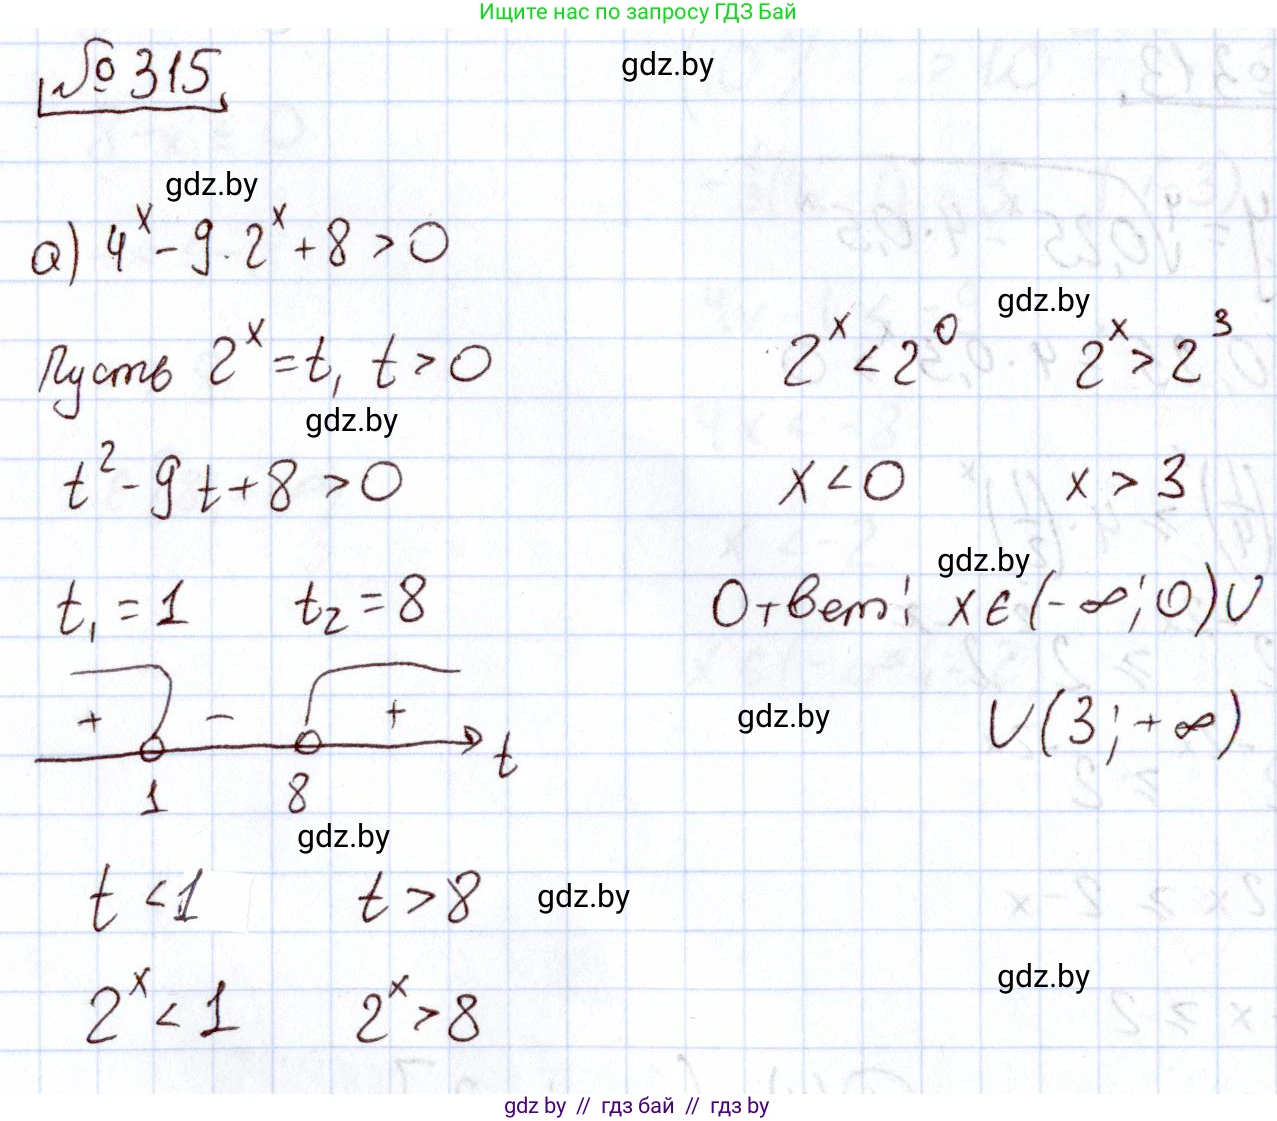 Ищите нас по запросу ГДЗ Бай
№ 315
gdz.by
gdz.by
а) 4^x - 9 · 2^x + 8 > 0
Пусть 2^x = t, t > 0
gdz.by
t^2 - 9t + 8 > 0
t₁ = 1 t₂ = 8
+ - + t
1 8
gdz.by
t < 1 t > 8
gdz.by
2^x < 1 2^x > 8
gdz.by
2^x < 2^0 2^x > 2^3
x < 0 x > 3
gdz.by
Ответ: x ∈ (-∞; 0) ∪
gdz.by
∪ (3; +∞)
gdz.by
gdz by // гдз бай // gdz by